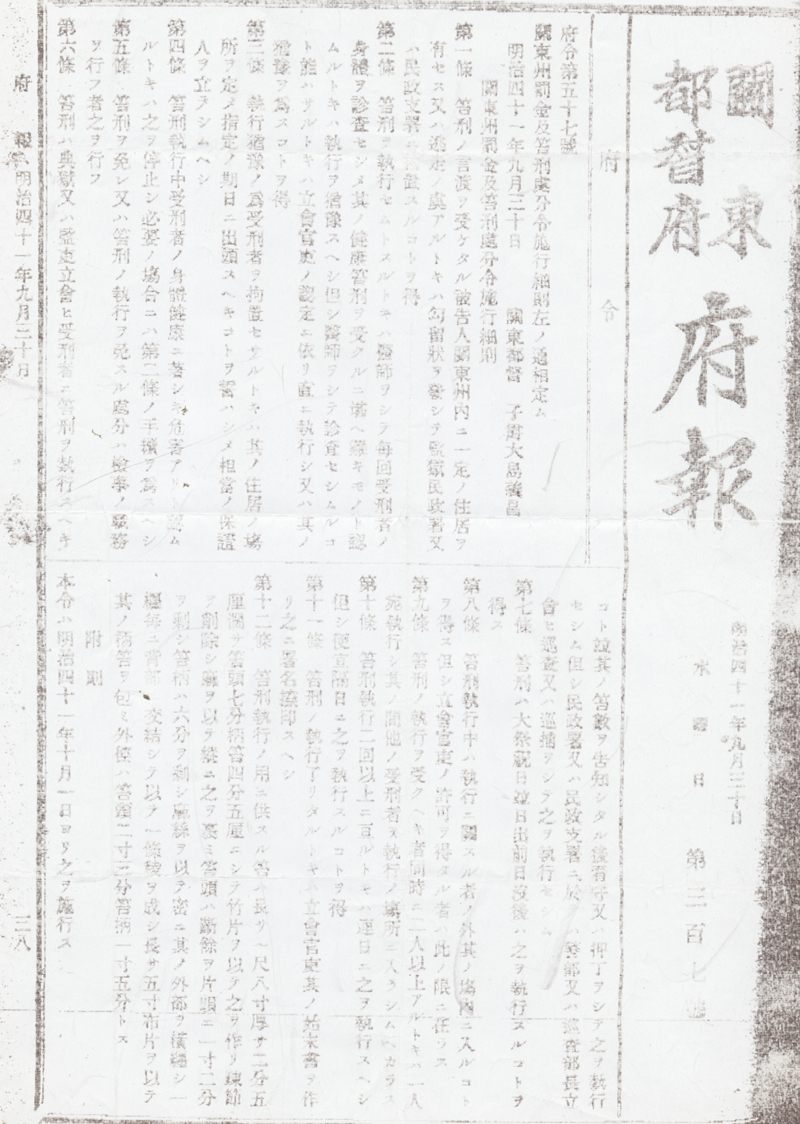 關東
都督府
府報
明治四十一年九月三十日
水曜日
第三百七號
府令
府令第五十七號
關東州罰金及笞刑處分令施行細則左ノ通相定ム
明治四十一年九月三十日 關東都督 子爵大島義昌
關東州罰金及笞刑處分令施行細則
第一條 笞刑ノ言渡ヲ受ケタル被告人關東州內ニ一定ノ住居ヲ
有セス又ハ逃走ノ虞アルトキハ勾留狀ヲ發シテ監獄民政署又
ハ民政支署ニ留置スルコトヲ得
第二條 笞刑ヲ執行セムトスルトキハ醫師ヲシテ每回受刑者ノ
身體ヲ診査セシメ其ノ健康笞刑ヲ受クルニ堪ヘ難キモノト認
ムルトキハ執行ヲ猶豫スヘシ但シ醫師ヲシテ診査セシムルコ
ト能ハサルトキハ立會官吏ノ認定ニ依リ直ニ執行シ又ハ其ノ
猶豫ヲ爲スコトヲ得
第三條 執行猶豫ノ爲受刑者ヲ拘置セサルトキハ其ノ住居ノ場
所ヲ定メ指定ノ期日ニ出頭スヘキコトヲ誓ハシメ相當ノ保證
人ヲ立ヲシムヘシ
第四條 笞刑執行中受刑者ノ身體健康ニ著シキ危害アリト認ム
ルトキハ之ヲ停止シ必要ノ場合ニハ第二條ノ手續ヲ爲スヘシ
第五條 笞刑ヲ免シ又ハ笞刑ノ執行ヲ免スル處分ハ檢察ノ職務
ヲ行フ者之ヲ行フ
第六條 笞刑ハ典獄又ハ監吏立會ヒ受刑者ニ笞刑ヲ執行スヘキ
コト竝其ノ笞數ヲ告知シタル後看守又ハ押丁ヲシテ之ヲ執行
セシム但シ民政署又ハ民政支署ニ於テハ警部又ハ巡査部長立
會ヒ巡査又ハ巡捕ヲシテ之ヲ執行セシム
第七條 笞刑ハ大祭祝日竝日出前日沒後ハ之ヲ執行スルコトヲ
得ス
第八條 笞刑執行中ハ執行ニ關スル者ノ外其ノ場內ニ入ルコト
ヲ得ス但シ立會官吏ノ許可ヲ得タル者ハ此ノ限ニ在ラス
第九條 笞刑ノ執行ヲ受クヘキ者同時ニ二人以上アルトキハ一人
宛執行シ其ノ間他ノ受刑者ヲ執行ノ場所ニ入ラシムヘカラス
第十條 笞刑執行二回以上ニ亙ルトキハ連日ニ之ヲ執行スヘシ
但シ便宜隔日ニ之ヲ執行スルコトヲ得
第十一條 笞刑ノ執行了リタルトキハ立會官吏其ノ始末書ヲ作
リ之ニ署名捺印スヘシ
第十二條 笞刑執行ノ用ニ供スル笞ハ長サ一尺八寸厚サ二分五
厘濶サ笞頭七分柄笞四分五厘ニシテ竹片ヲ以テ之ヲ作リ
ヲ削除シ麻ヲ以テ緩ニ之ヲ裹ミ笞頭ハ斷餘ヲ片頭ニ一寸二分
ヲ剩シ笞柄ハ六分ヲ剩シ麻絲ヲ以テ密ニ其ノ外部ヲ橫纏シ一
纏每ニ背部ニ交結シテ以テ一條稜ヲ成シ長サ五寸布片ヲ以テ
其ノ柄笞ヲ包ミ外徑ハ笞頭二寸二分笞柄一寸五分トス
附則
本令ハ明治四十一年十月一日ヨリ之ヲ施行ス
府報 明治四十一年九月三十日
三八